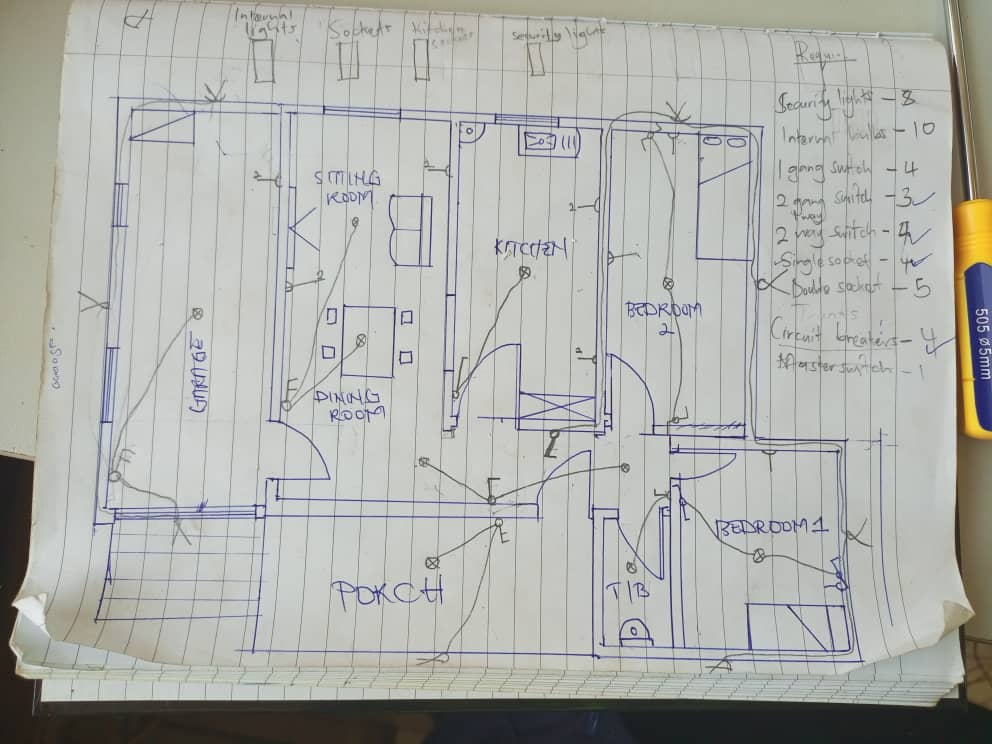 Internal
lights
Sockets
Kitchen
sockets
Security lights
Requi
Security lights - 8
Internal bulbs - 10
1 gang switch - 4
2 gang switch - 3 ✓
1 way
2 way switch - 4 ✓
Single socket - 4 ✓
Double socket - 5
Circuit breakers - 4 ✓
Master switch - 1
SITTING
ROOM
KITCHEN
BEDROOM
2
GARAGE
DINING
ROOM
BEDROOM 1
PORCH
T/B
2
2
2
2
2
505 ø5mm